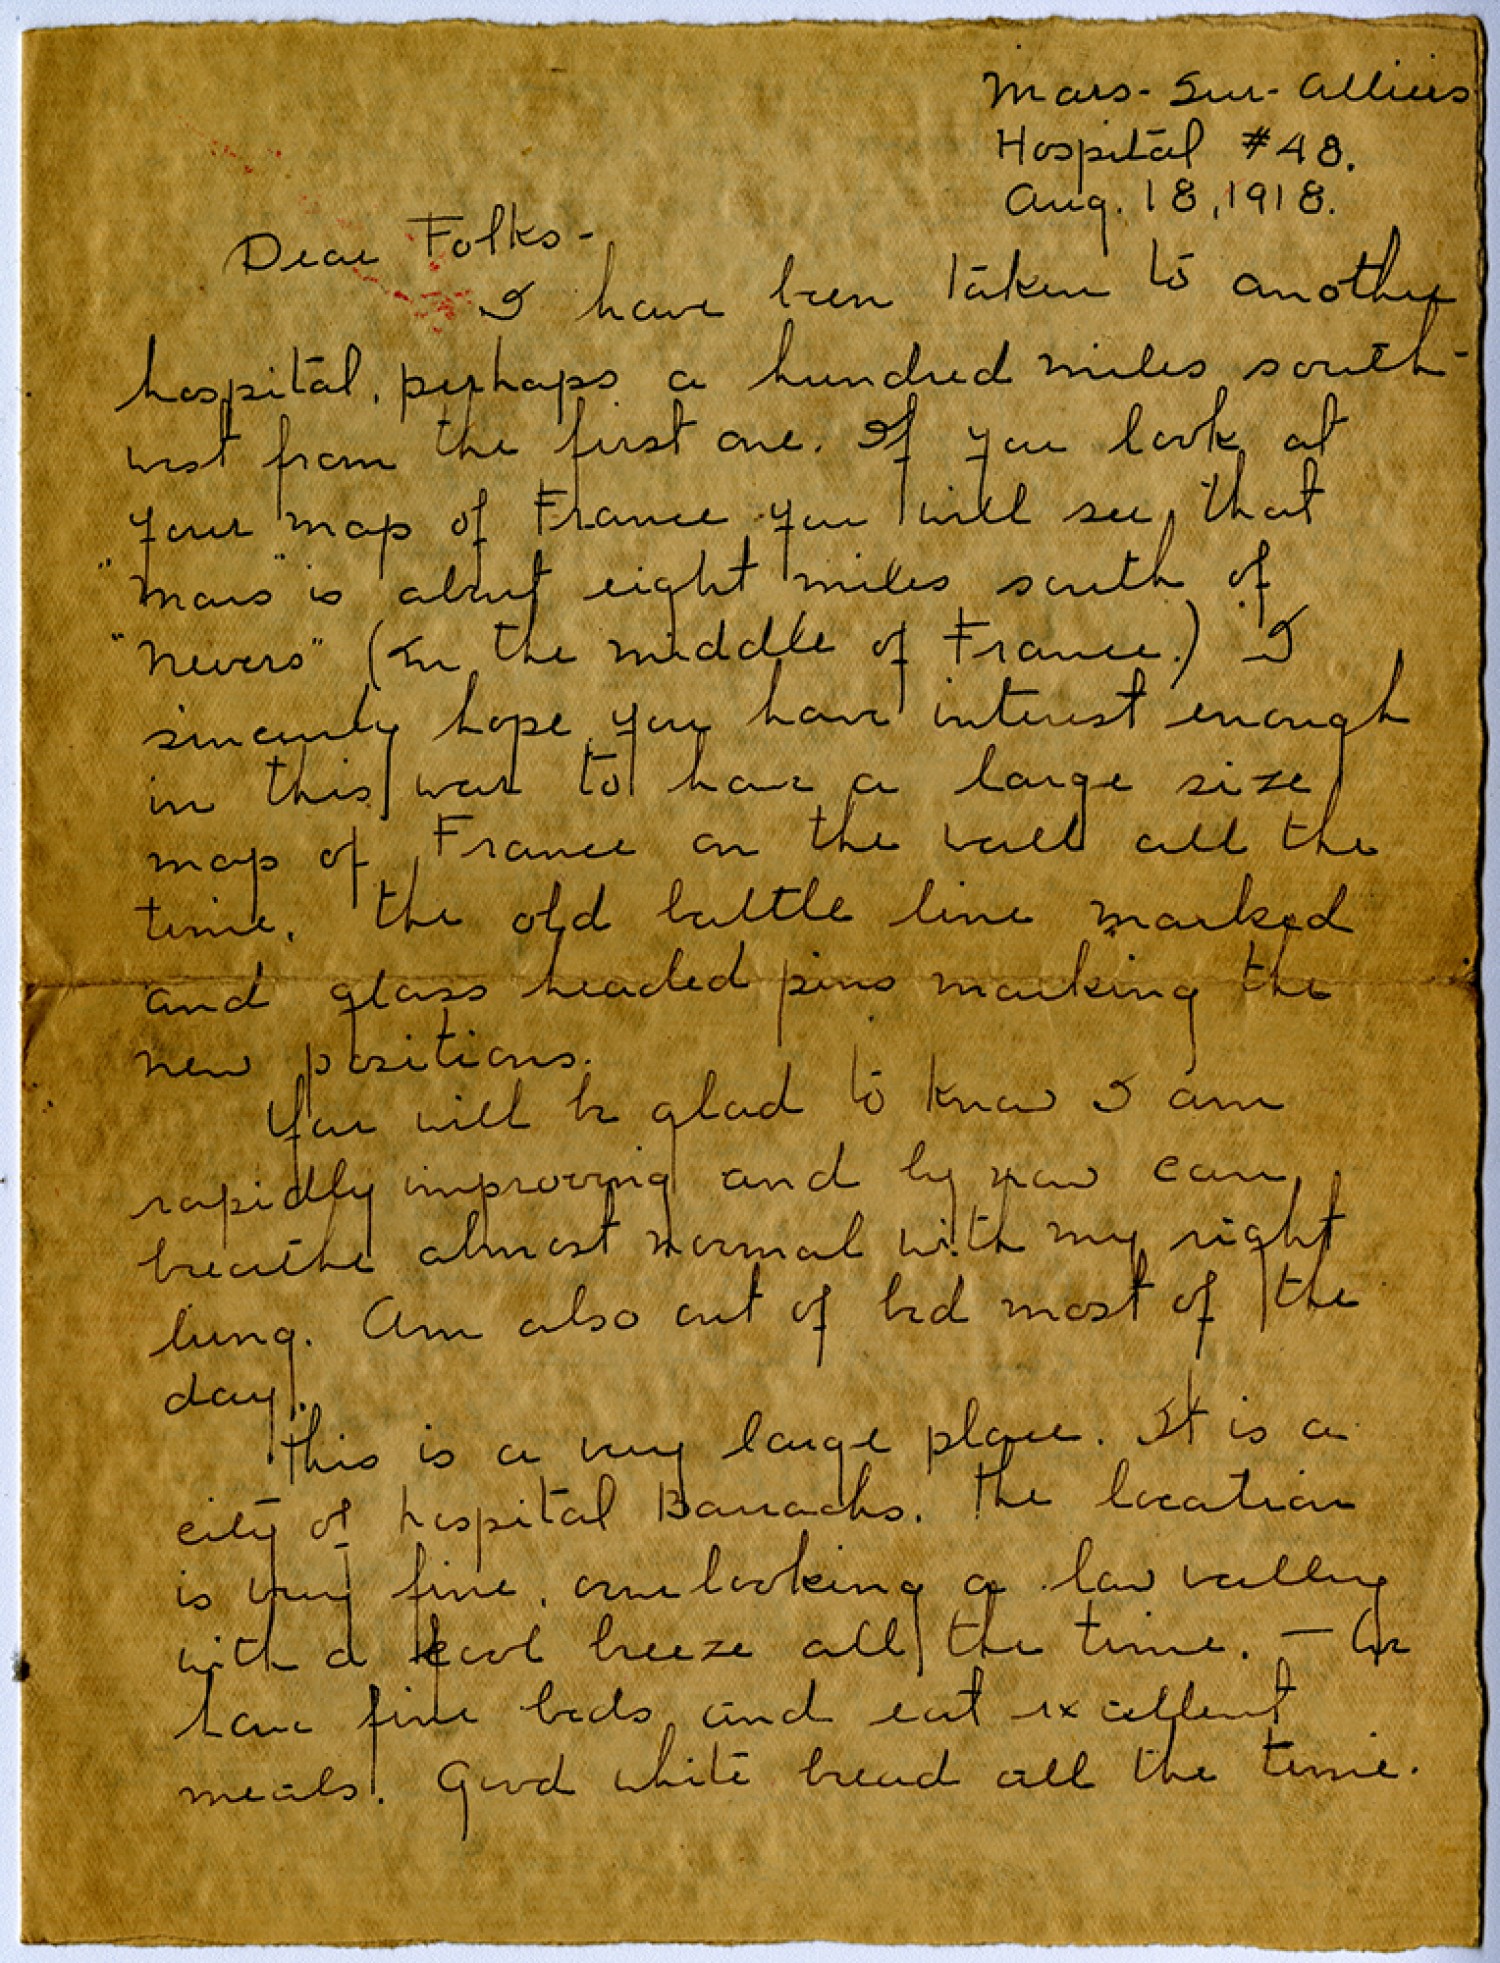 Mars-Sur-Alliers
Hospital #48.
Aug. 18, 1918.
Dear Folks-
I have been taken to another
hospital, perhaps a hundred miles south-
west from the first one. If you look at
your map of France you will see that
"Mars" is about eight miles south of
"Nevers" (In the middle of France.) I
sincerely hope you have interest enough
in this war to have a large size
map of France on the wall all the
time, the old battle line marked
and glass headed pins marking the
new positions.
You will be glad to know I am
rapidly improving and by now can
breathe almost normal with my right
lung. Am also out of bed most of the
day.
This is a very large place. It is a
city of hospital Barracks. The location
is very fine, overlooking a low valley
with a kool breeze all the time. — We
have fine beds and eat excellent
meals. Good white bread all the time.